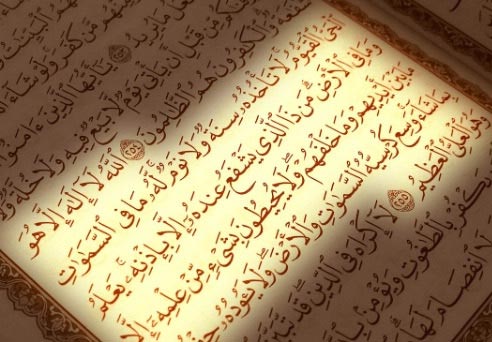 مَّن كَفَرَ وَلَوْ شَآءَ
مَا يُرِيدُ ٢٥٣ يَٰٓأَيُّهَا ٱلَّذِينَ ءَامَنُوٓا۟
مِّن قَبْلِ أَن يَأْتِىَ يَوْمٌ لَّا بَيْعٌ فِيهِ وَلَا خُلَّةٌ وَلَا
ٱلْكَٰفِرُونَ هُمُ ٱلظَّٰلِمُونَ ٢٥٤ ٱللَّهُ لَآ إِلَٰهَ إِلَّا هُوَ
ٱلْحَىُّ ٱلْقَيُّومُ لَا تَأْخُذُهُۥ سِنَةٌ وَلَا نَوْمٌ لَّهُۥ مَا فِى ٱلسَّمَٰوَٰتِ
وَمَا فِى ٱلْأَرْضِ مَن ذَا ٱلَّذِى يَشْفَعُ عِندَهُۥٓ إِلَّا بِإِذْنِهِۦ يَعْلَمُ
مَا بَيْنَ أَيْدِيهِمْ وَمَا خَلْفَهُمْ وَلَا يُحِيطُونَ بِشَىْءٍ مِّنْ عِلْمِهِۦٓ إِلَّا
بِمَا شَآءَ وَسِعَ كُرْسِيُّهُ ٱلسَّمَٰوَٰتِ وَٱلْأَرْضَ وَلَا يَـُٔودُهُۥ
وَهُوَ ٱلْعَلِىُّ ٱلْعَظِيمُ ٢٥٥ لَآ إِكْرَاهَ فِى ٱلدِّينِ قَد تَّبَيَّنَ
يَكْفُرْ بِٱلطَّٰغُوتِ وَيُؤْمِنۢ
لَا ٱنفِصَامَ لَهَا